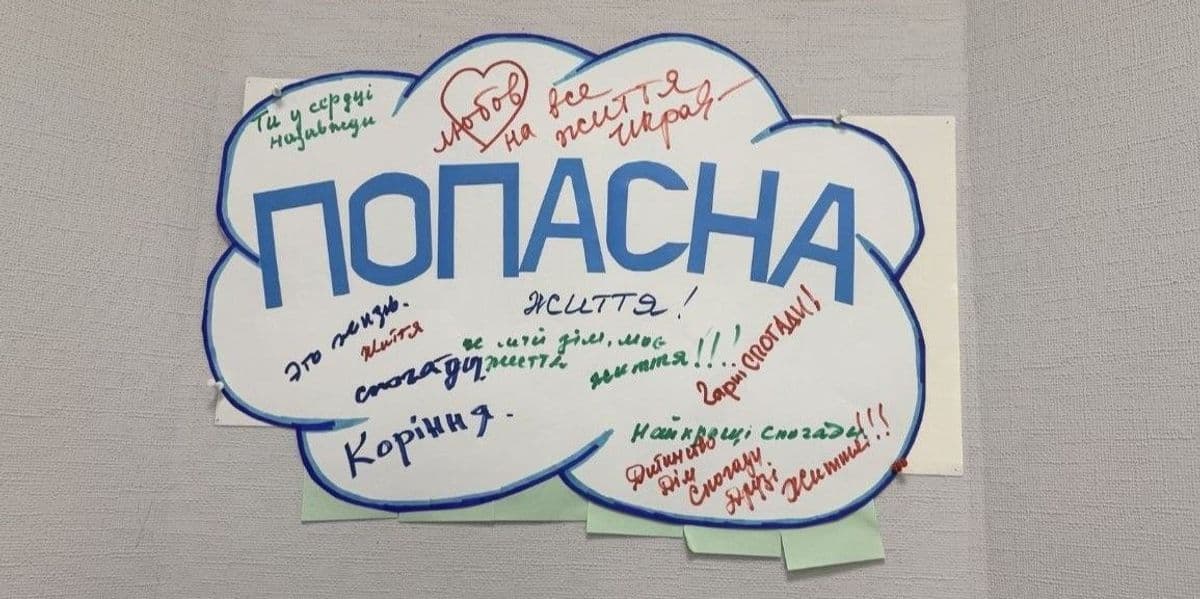 Ти у сєрдці
назавжди
любов
на все
життя
ПОПАСНА
життя!
это жизнь.
життя
мій дім, моє
життя
життя!!!
спогади
Коріння.
Гарні СПОГАДИ!
Найкращі спогади!!!
Дитинство
Дім
Спогади
друзі
життя!!!